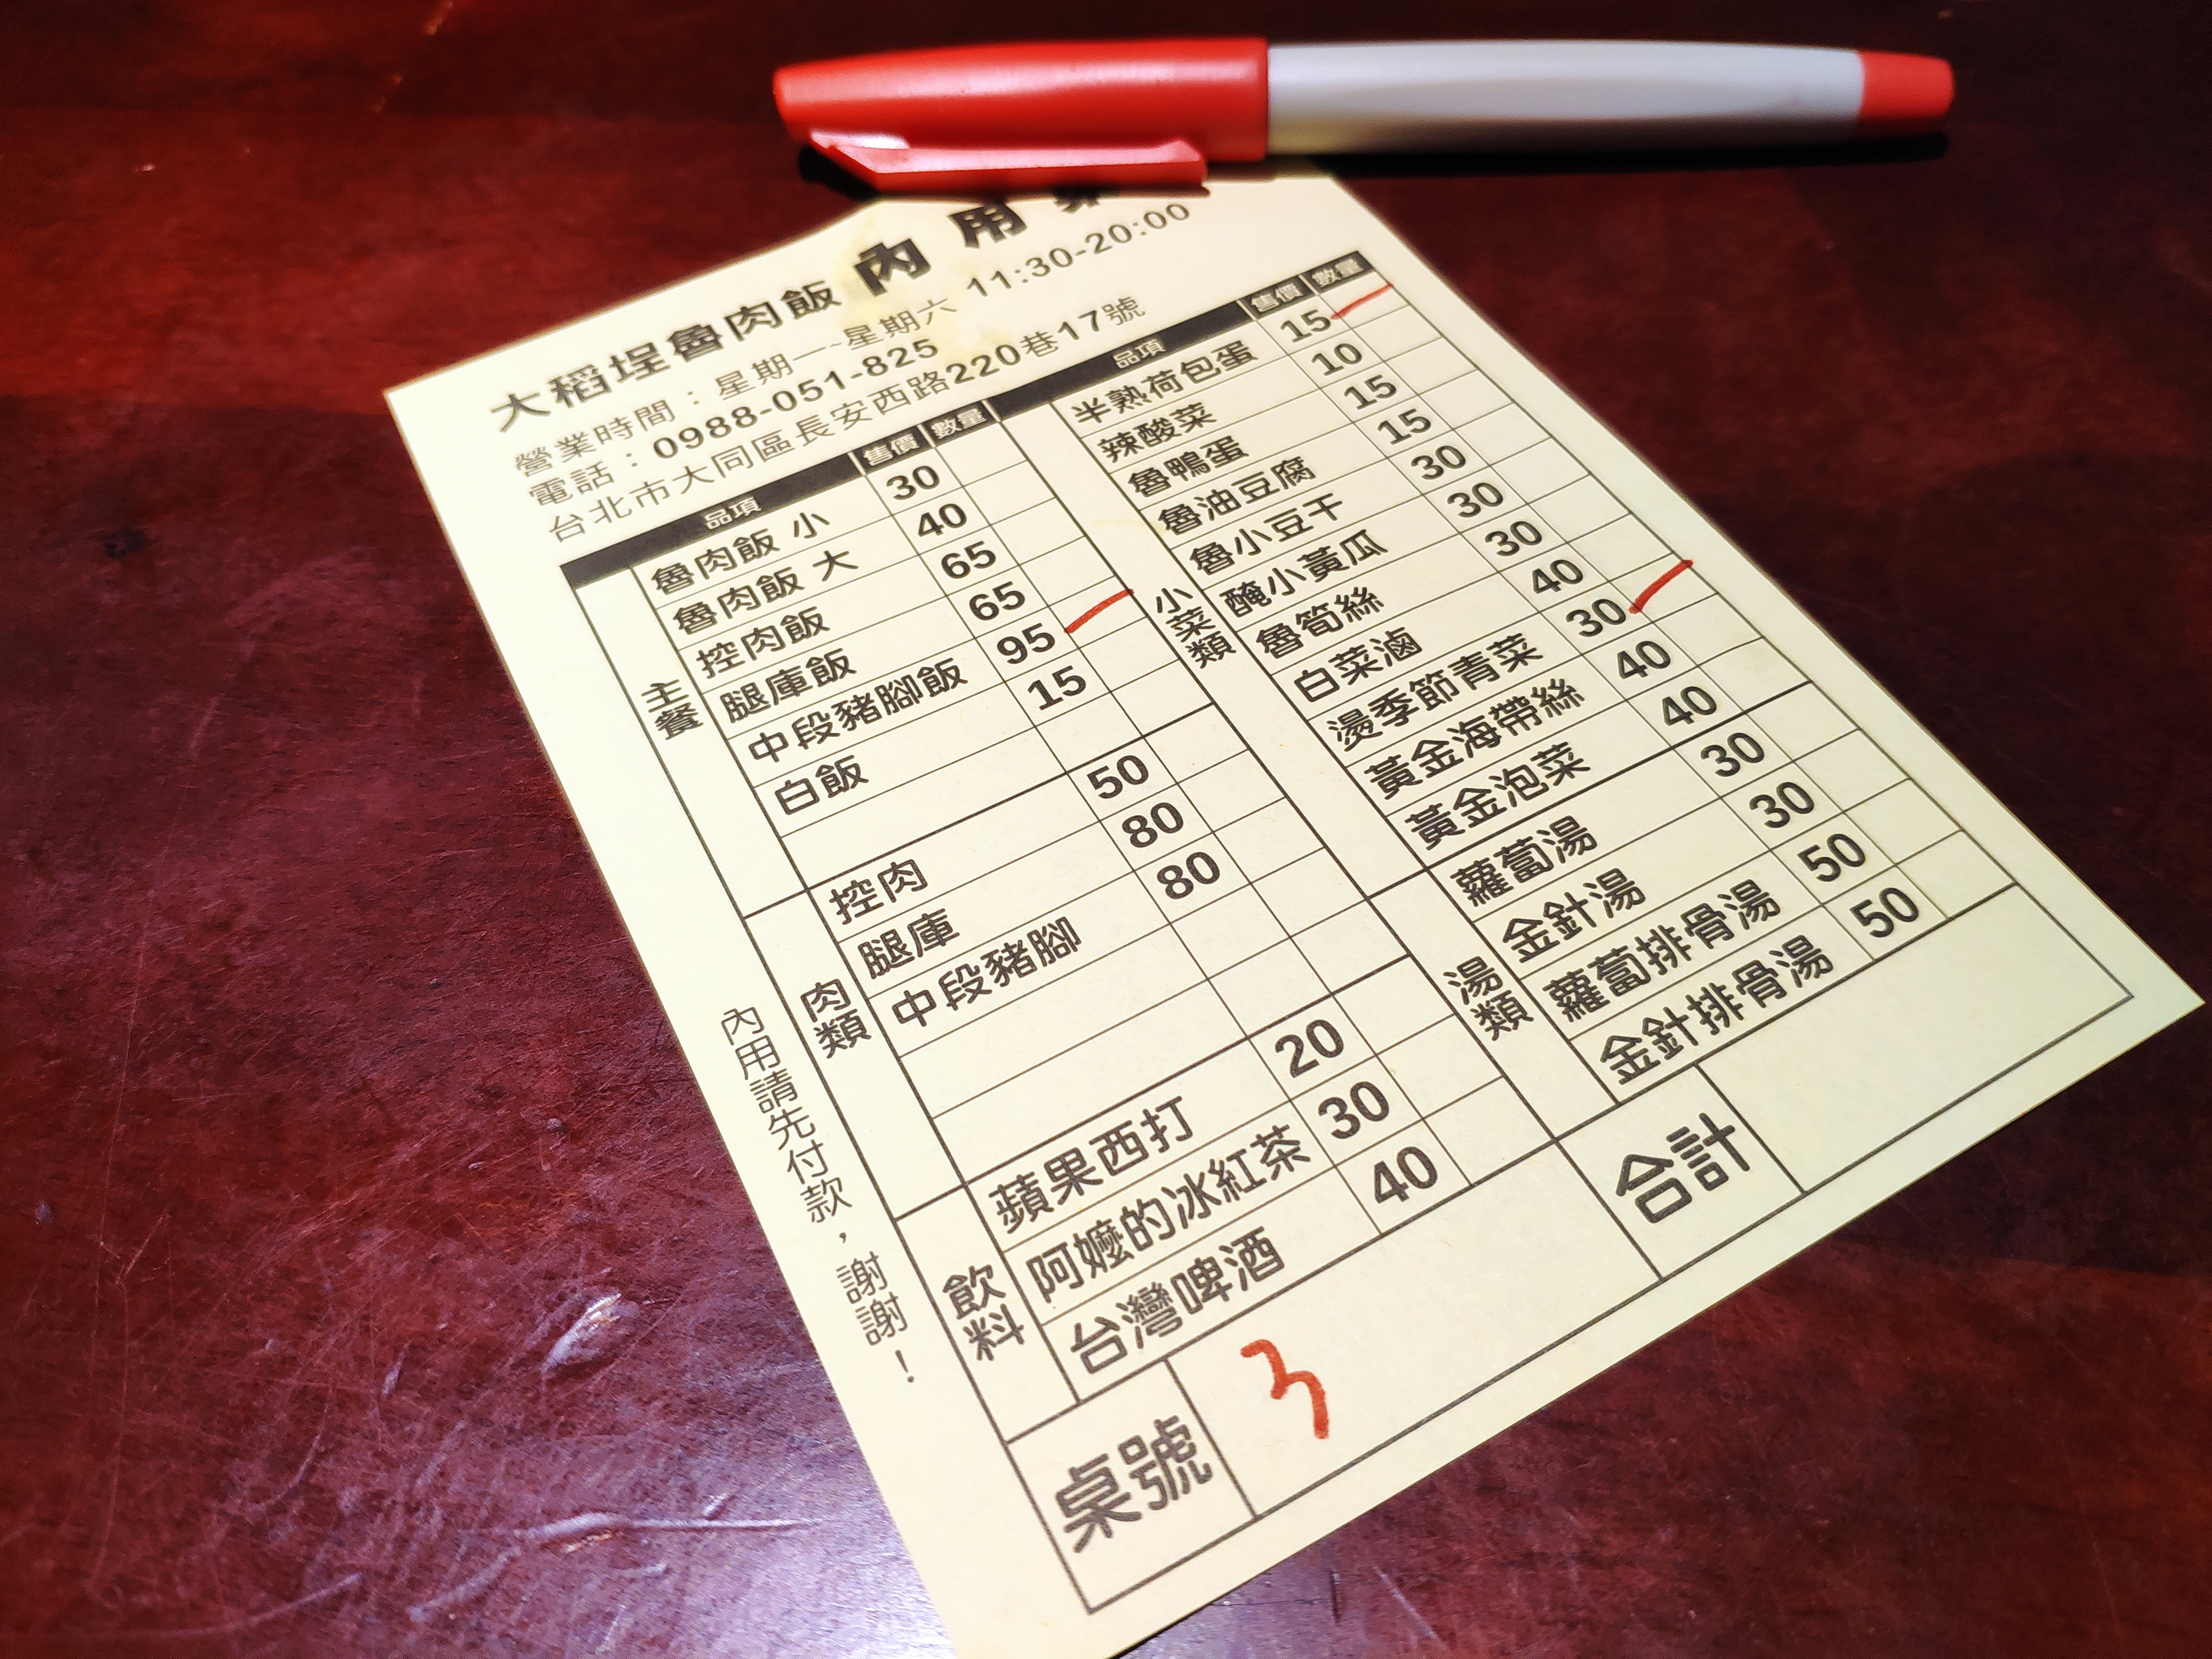 大稻埕魯肉飯 內用
營業時間：星期一~星期六 11:30-20:00
電話：0988-051-825
台北市大同區長安西路220巷17號
品項 售價 數量
主餐
魯肉飯 小 30
魯肉飯 大 40
控肉飯 65
腿庫飯 65
中段豬腳飯 95
白飯 15
肉類
控肉 50
腿庫 80
中段豬腳 80
飲料
蘋果西打 20
阿嬤的冰紅茶 30
台灣啤酒 40
桌號 3
品項 售價 數量
小菜類
半熟荷包蛋 15
辣酸菜 10
魯鴨蛋 15
魯油豆腐 15
魯小豆干 30
醃小黃瓜 30
魯筍絲 30
白菜滷 40
燙季節青菜 30
黃金海帶絲 40
黃金泡菜 40
湯類
蘿蔔湯 30
金針湯 30
蘿蔔排骨湯 50
金針排骨湯 50
合計
內用請先付款，謝謝！